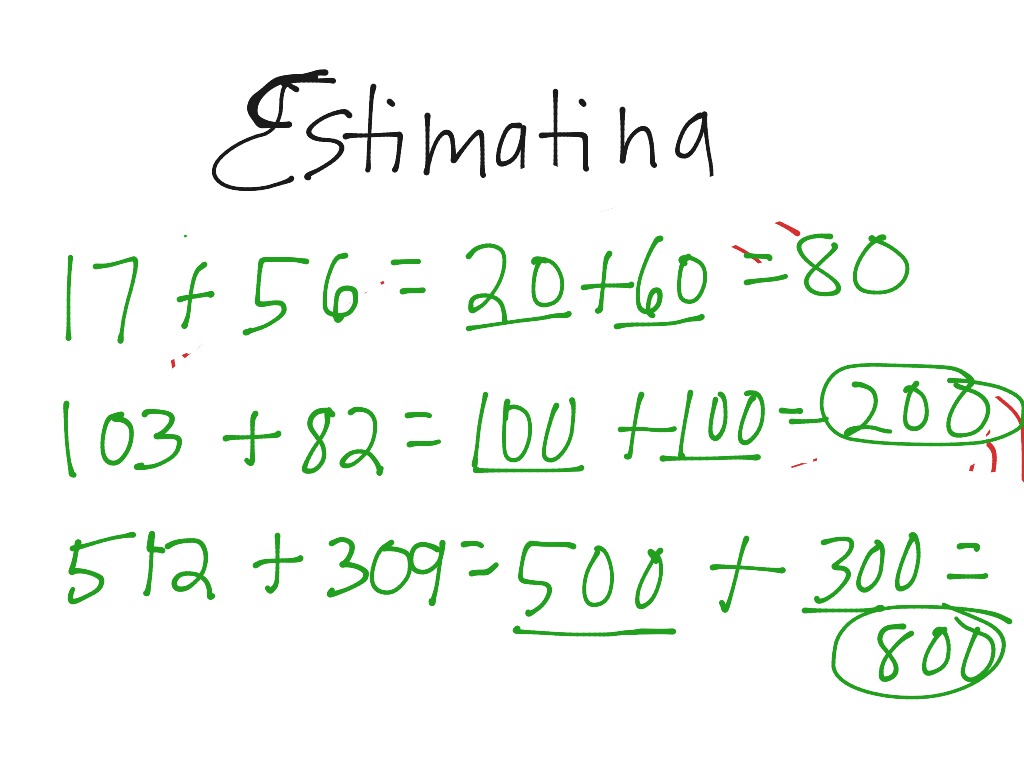 Estimating
17 + 56 = 20 + 60 = 80
103 + 82 = 100 + 100 = 200
512 + 309 = 500 + 300 =
800